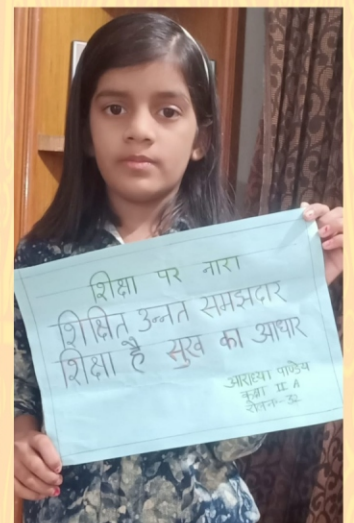 शिक्षा पर नारा
शिक्षित उन्नत समझदार
शिक्षा है सुख का आधार
आराध्या पाण्डेय
कक्षा II A
रोल न०-32